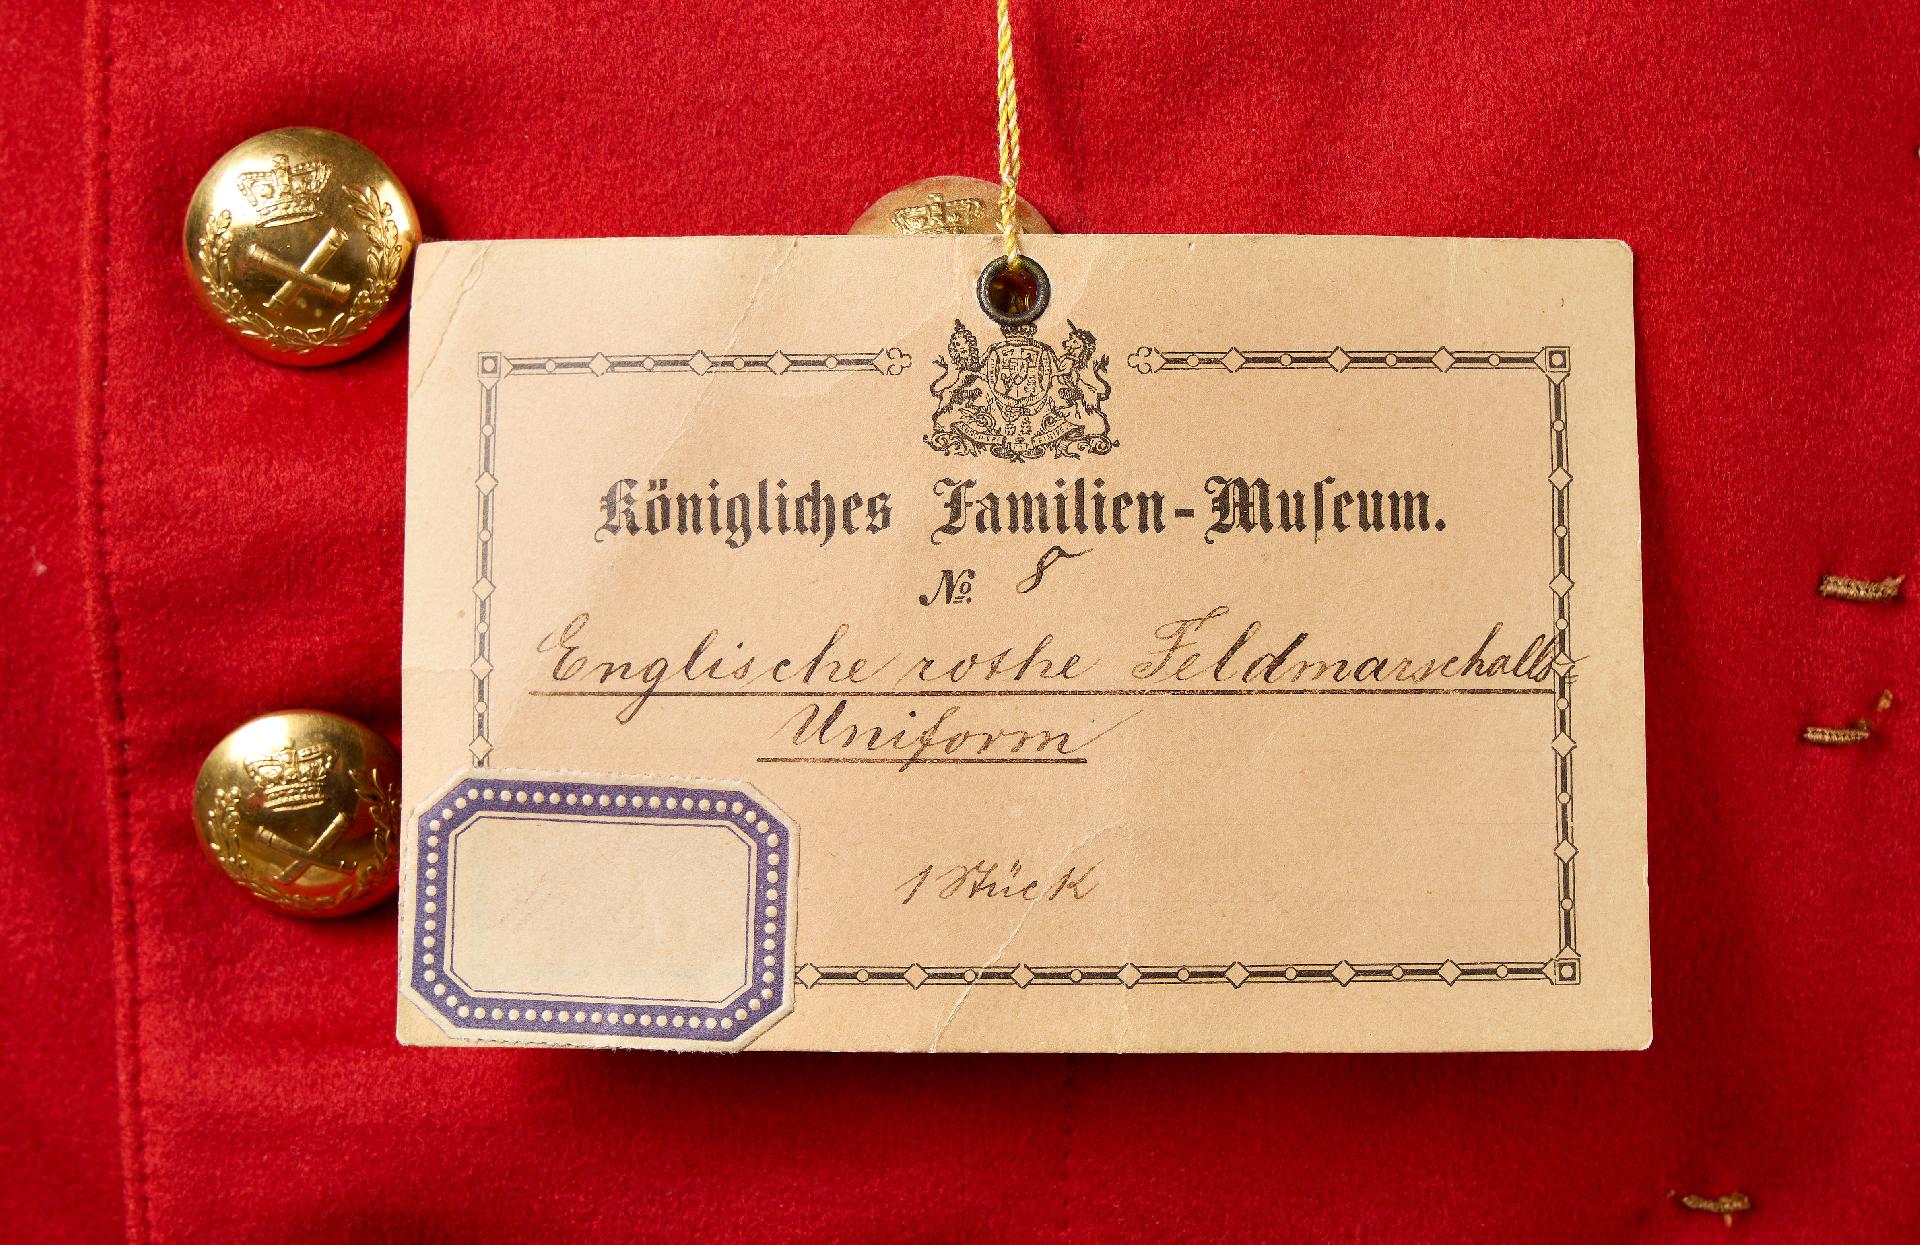 Königliches Familien-Muſeum.
No. 8
Englische rothe Feldmarschalls-
Uniform
1 Stück